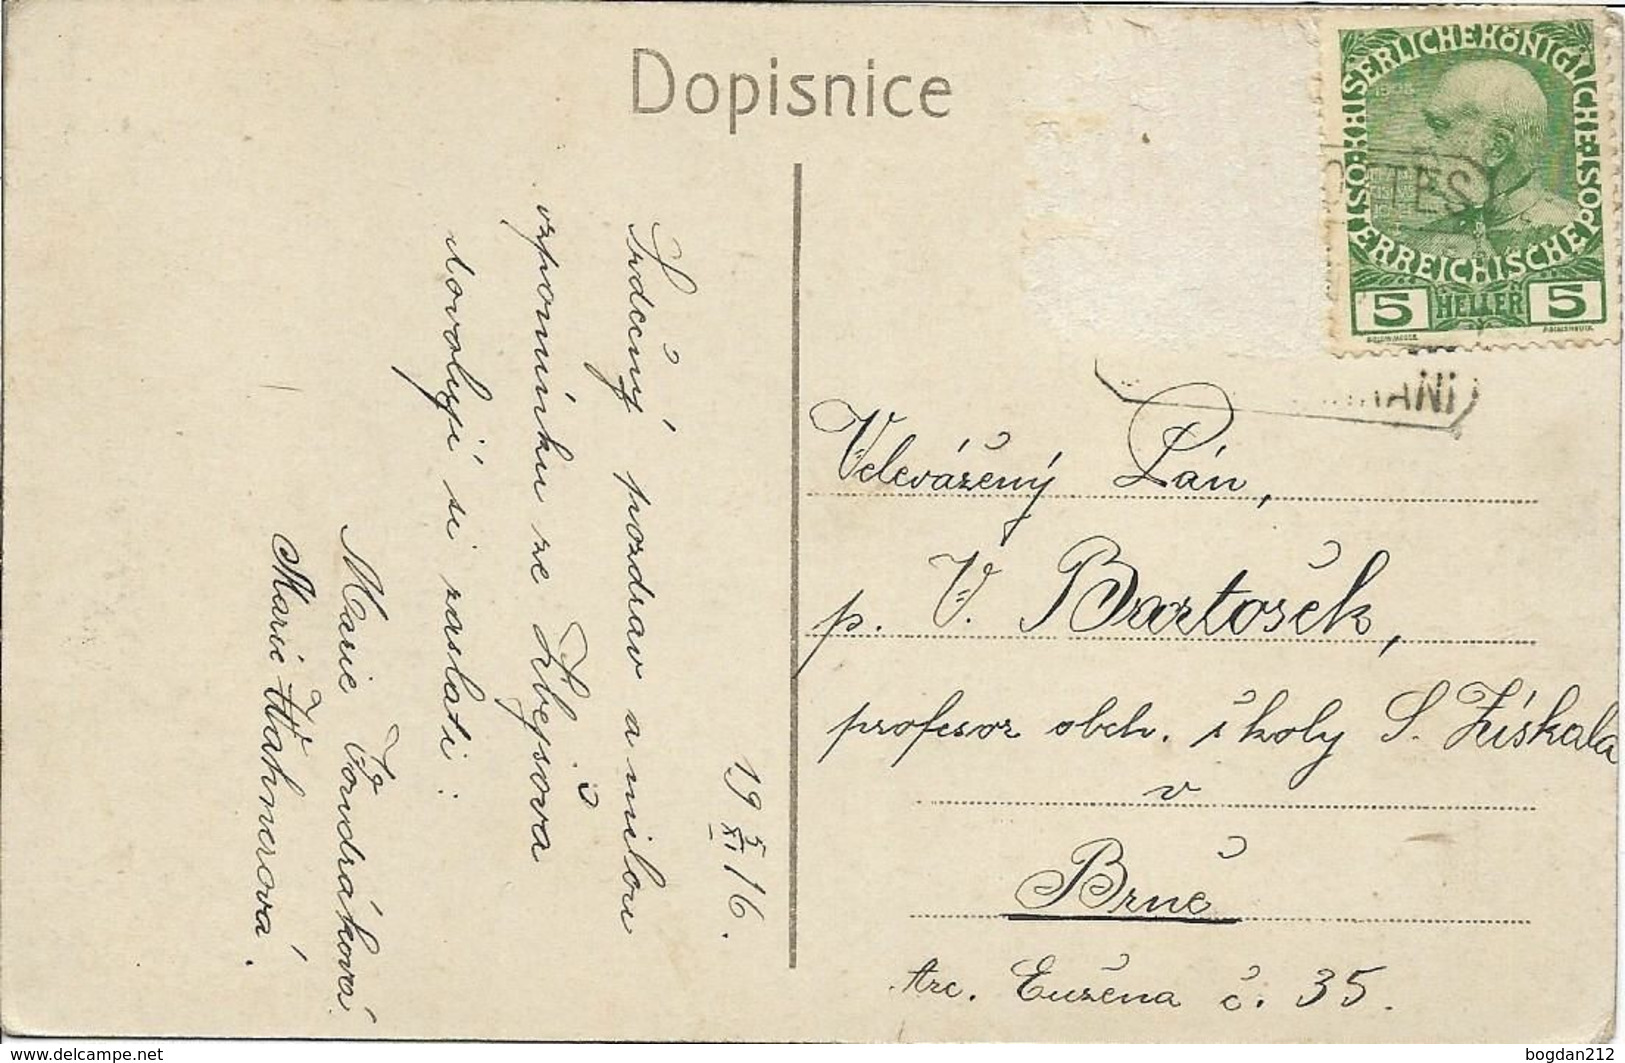 Dopisnice
KAISERLICHE KÖNIGLICHE
ÖSTERREICHISCHE POST
1908
5 HELLER 5
TĚŠ
ANI
19 5/XI 16.
Srdečný pozdrav a milou
vzpomínku ze Zbejšova
dovolují si zaslati:
Marie Vondráková
Marie Hahnerová.
Velevážený Pán,
p. V. Bartošek,
profesor obch. školy S. Získala
v
Brně
Arc. Eužena č. 35.
www.delcampe.net
bogdan212